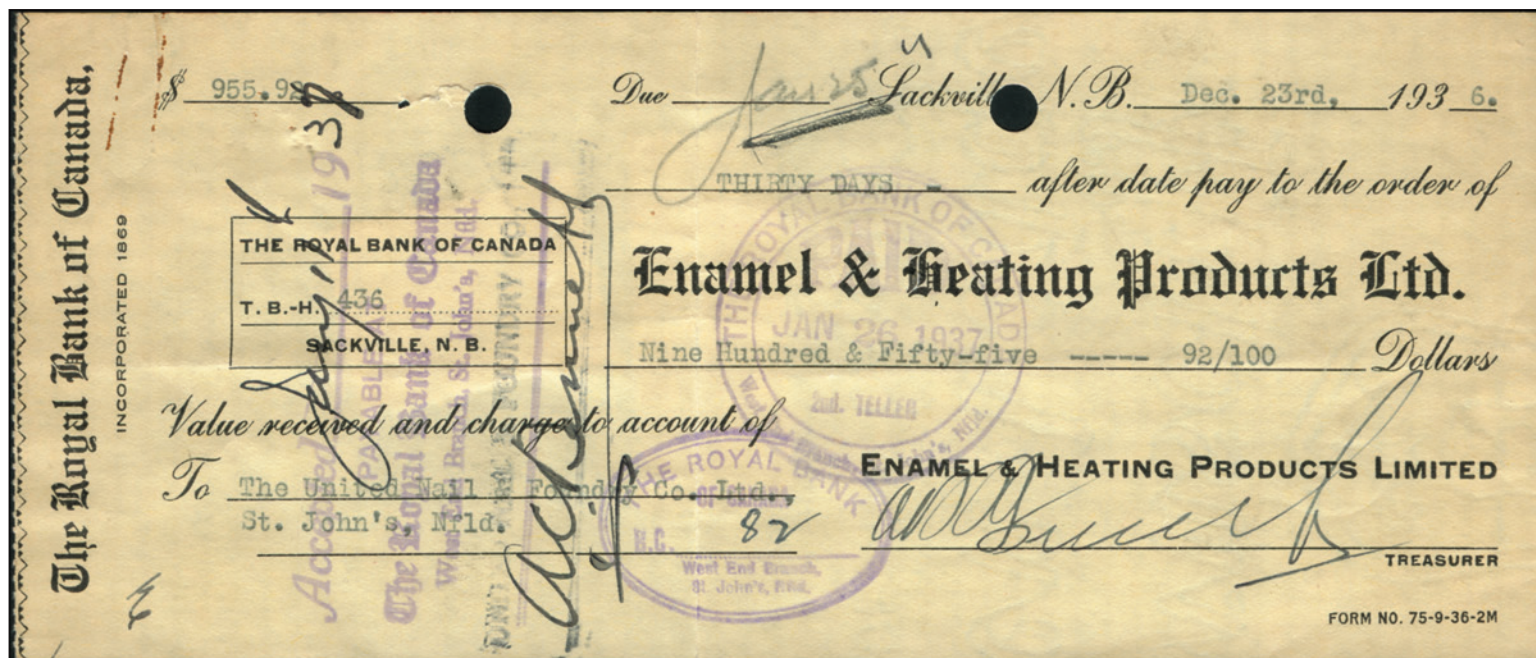 The Royal Bank of Canada,
INCORPORATED 1869
$ 955.92
Due Jan 25 Sackville N. B. Dec. 23rd, 1936.
THIRTY DAYS - after date pay to the order of
Enamel & Heating Products Ltd.
Nine Hundred & Fifty-five ----- 92/100 Dollars
THE ROYAL BANK OF CANADA
T. B.-H. 436
SACKVILLE, N. B.
Value received and charge to account of
To The United Nail Foundry Co. Ltd.,
St. John's, Nfld.
82
ENAMEL & HEATING PRODUCTS LIMITED
TREASURER
FORM NO. 75-9-36-2M
Accepted 1937
PAYABLE AT
The Royal Bank of Canada
West End Branch, St. John's, Nfld.
THE ROYAL BANK OF CANADA
PAID
JAN 26 1937
2nd. TELLER
West End Branch, St. John's, Nfld.
THE ROYAL BANK
OF CANADA
H.C.
West End Branch,
St. John's, Nfld.